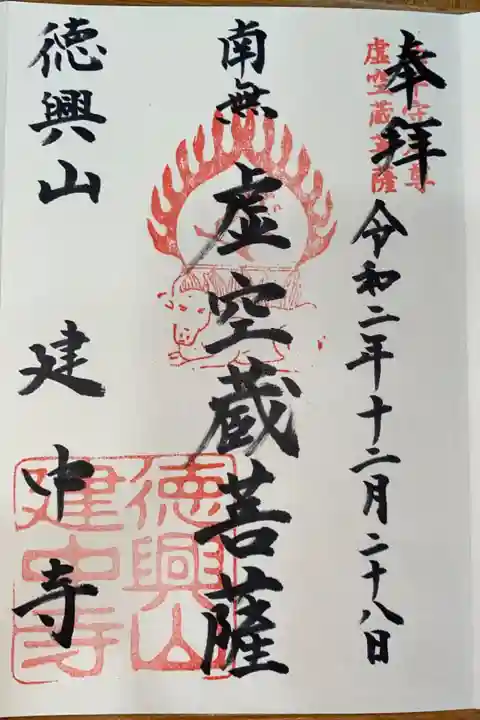 奉拝
令和二年十二月二十八日
虚空蔵菩薩
南無
虚空蔵菩薩
徳興山
建中寺
徳興山
建中寺